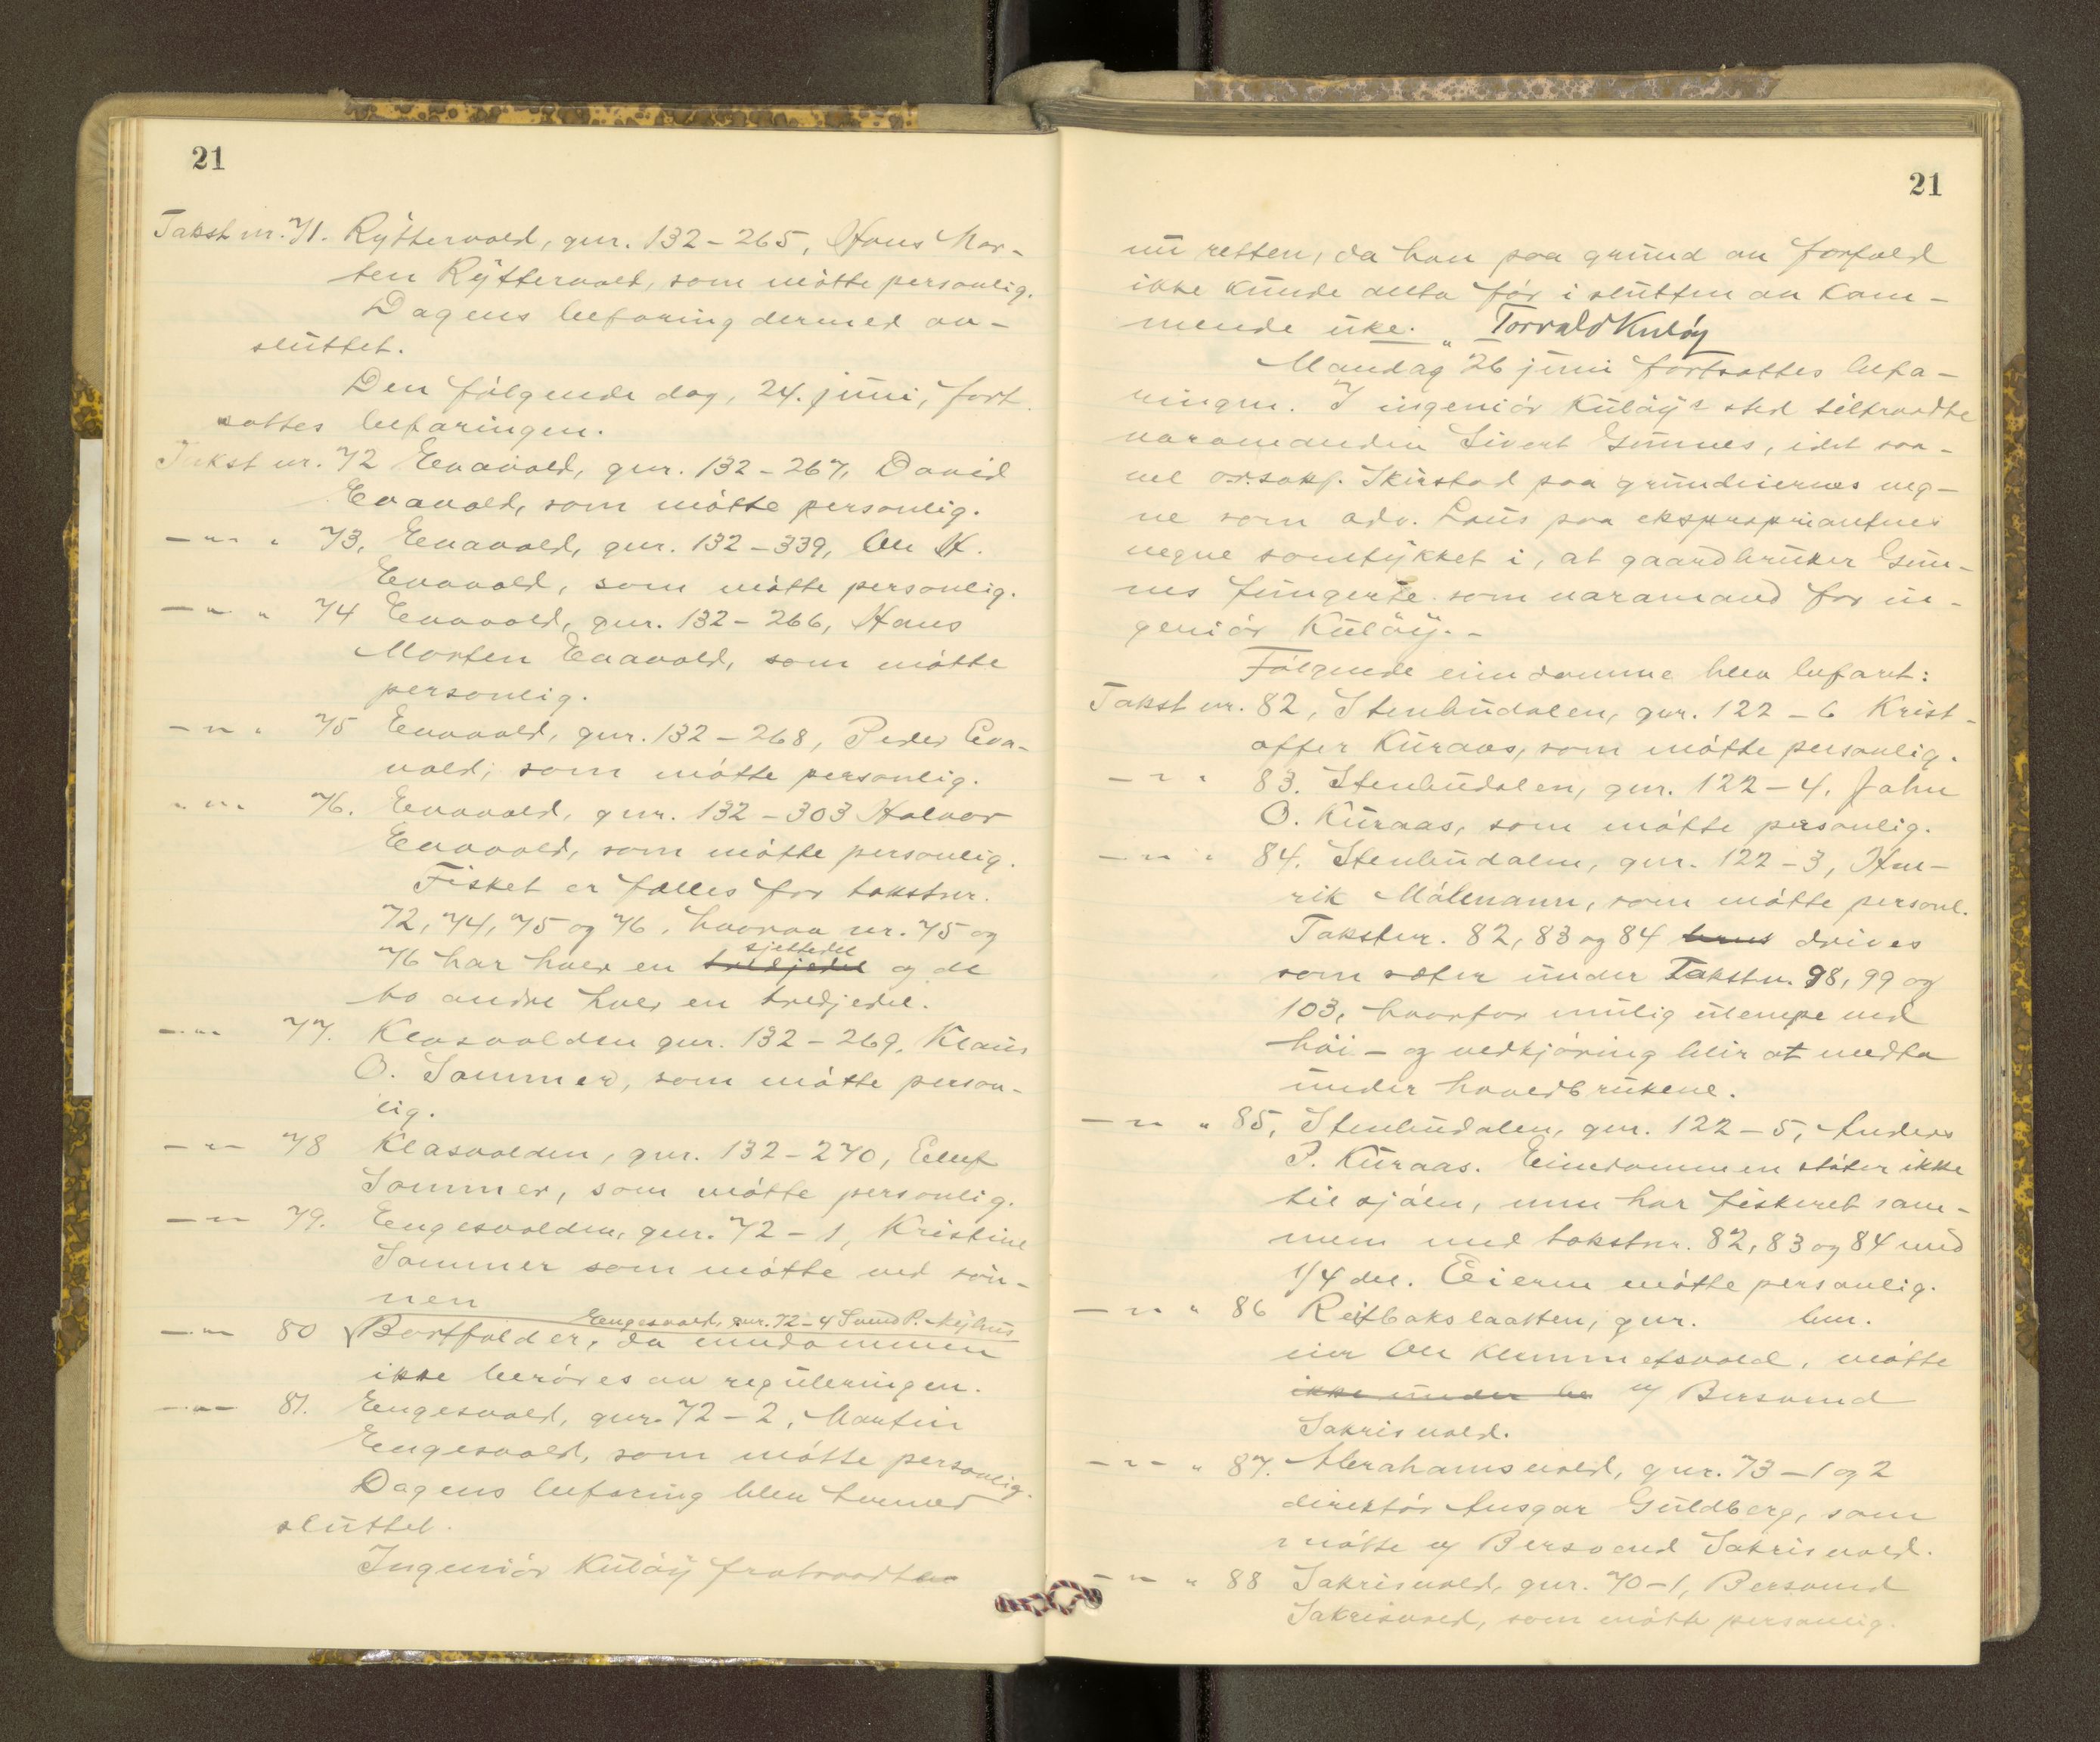 21
Takst nr. 71. Ryttervold, gnr. 132-265, Hans Mor-
ten Ryttervold, som møtte personlig.
Dagens befaring dermed av-
sluttet.
Den følgende dag, 24. juni, fort
sattes befaringen.
Takst nr. 72 Evavold, gnr. 132-267, David
Evavold, som møtte personlig.
—"— " 73, Evavold, gnr. 132-339, Ole H.
Evavold, som møtte personlig.
—"— " 74 Evavold, gnr. 132-266, Hans
Morten Evavold, som møtte
personlig.
—"— " 75 Evavold, gnr. 132-268, Peder Eva-
vold, som møtte personlig.
—"— 76. Evavold, gnr. 132-303 Halvor
Evavold, som møtte personlig.
Fisket er fælles for takstnr.
72, 74, 75 og 76, hvorav nr. 75 og
sjettedel
76 har hver en tredjedel og de
to andre hver en tredjedel.
—"— 77. Klasvolden gnr. 132-269, Klaus
O. Sommer, som møtte person-
lig.
—"— 78 Klasvolden, gnr. 132-270, Elluf
Sommer, som møtte personlig.
—"— 79. Engesvolden, gnr. 72-1, Kristine
Sommer som møtte ved søn-
nen
Engesvold, gnr. 72-4 Svend P. Nyhus
—"— 80 Bortfalder, da eiendommen
ikke berøres av reguleringen.
—"— 81. Engesvold, gnr. 72-2, Martin
Engesvold, som møtte personlig.
Dagens befaring blev hermed
sluttet.
Ingeniør Kuløy fratraadte
21
nu retten, da han paa grund av forfald
ikke kunde delta før i slutten av kom-
mende uke. " Torvald Kuløy
Mandag 26 juni fortsattes befa-
ringen. I ingeniør Kuløys sted tiltraadte
varamanden Sivert Gunnes, idet saa-
vel o.r.sakf. Skirstad paa grundeiernes veg-
ne som adv. Lous paa ekspropriantens
vegne samtykket i, at gaardbruker Gun-
nes fungerte som varamand for in-
geniør Kuløy. -
Følgende eiendomme blev befart:
Takst nr. 82, Stenbudalen, gnr. 122-6 Krist-
offer Kuraas, som møtte personlig.
—"— " 83. Stenbudalen, gnr. 122-4, John
O. Kuraas, som møtte personlig.
—"— " 84. Stenbudalen, gnr. 122-3, Hen-
rik Målmann, som møtte personl.
Takstnr. 82, 83 og 84 brus drives
som sæter under Takstnr. 98, 99 og
103, hvorfor mulig ulempe ved
høi- og vedkjøring blir at medta
under hovedbrukene.
—"— " 85, Stenbudalen, gnr. 122-5, Anders
P. Kuraas. Eiendommen støter ikke
til sjøen, men har fiskeret sam-
men med takstnr. 82, 83 og 84 med
1/4 del. Eieren møtte personlig.
—"— " 86 Reitbakslaatten, gnr. bnr.
eier Ole Klemmetsvold, møtte
ikke under be v/ Bersvend
Sakrisvold.
—"— " 87. Abrahamsvold, gnr. 73-1 og 2
direktør Ansgar Guldberg, som
møtte v/ Bersvend Sakrisvold.
—"— " 88 Sakrisvold, gnr. 70-1, Bersvend
Sakrisvold, som møtte personlig.